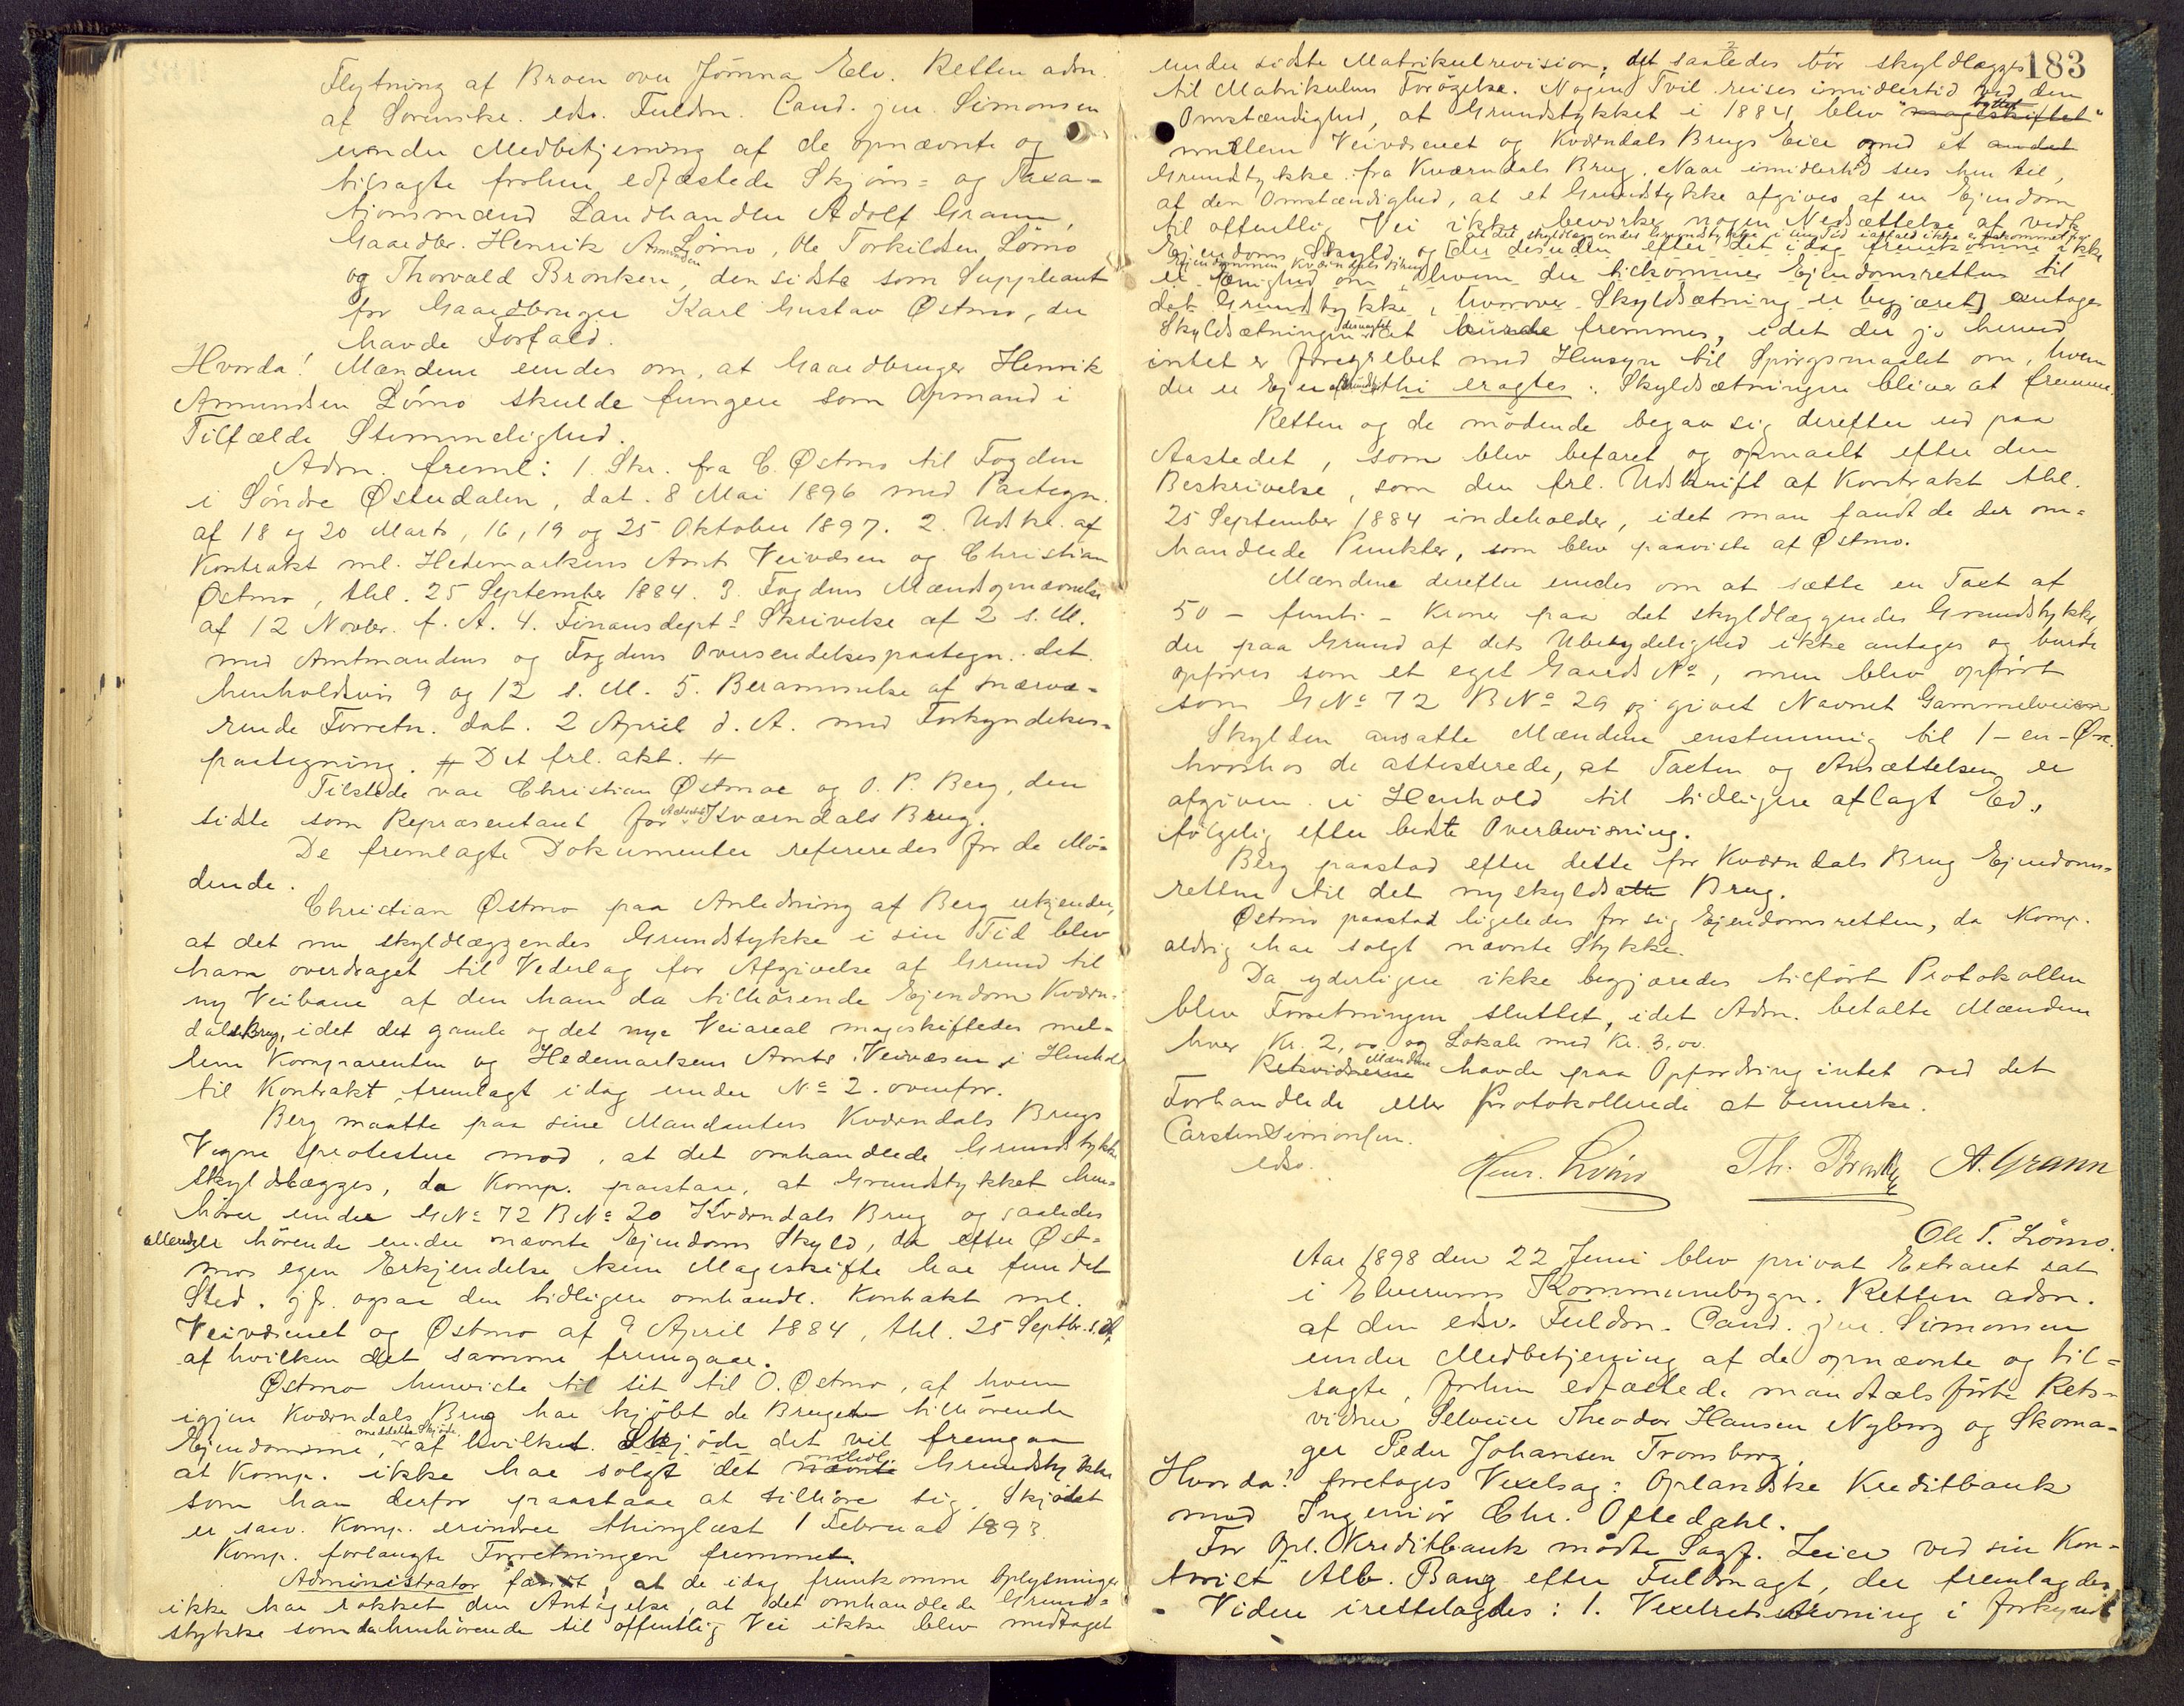 Flytning af Broen over Jömna Elv. Retten adm.
af Sorenskr. edsv. Fuldm. Cand. jur. Simonsen
under Medbetjening af de opnævnte og
tilsagte forhen edfæstede Skjöns- og Taxa-
tionsmænd Landhandler Adolf Grann,
Gaardbr. Henrik Amundsen Lömo, Ole Torkildsen Lömo
og Thorvald Bronken, den sidste som Suppleant
for Gaardbruger Karl Gustav Østmo, der
havde Forfald.
Hvorda! Mændene enedes om, at Gaardbruger Henrik
Amundsen Lömo skulde fungere som Opmand i
Tilfælde Stemmelighed.
Adm. freml: 1. Skr. fra C. Østmo til Fogden
i Söndre Østerdalen, dat. 8 Mai 1896 med Paategn.
af 18 og 20 Marts, 16, 19 og 25 Oktober 1897. 2. Udskr. af
Kontrakt ml. Hedemarkens Amts Veivæsen og Christian
Østmo, thl. 25 September 1884. 3. Fogdens Mændsopnævnelse
af 12 Novbr. f. A. 4. Finansdepts Skrivelse af 2 s. M.
med Amtmandens og Fogdens Oversendelsespaategn. dat.
henholdsvis 9 og 12 s. M. 5. Berammelse af nærvæ-
rende Forretn. dat. 2 April d. A. med Forkyndelses-
paategning. # Det frl. akt. #
Tilstede var Christian Østmo og O. P. Berg, den
sidste som Repræsentant for Kværndals Brug.
De fremlagte Dokumenter refereredes for de Mö-
dende.
Christian Østmo paa Anledning af Berg erkjender,
at det nu skyldlæggendes Grundstykke i sin Tid blev
ham overdraget til Vederlag for Afgivelse af Grund til
ny Veibane af den ham da tilhörende Ejendom Kværn-
dals Brug, idet det gamle og det nye Veiareal mageskiftedes mel-
lem Komparenten og Hedemarkens Amts Veivæsen i Henhold
til Kontrakt, fremlagt idag under No 2. ovenfor.
Berg maatte paa sine Mandanters Kværndals Brugs
Vegne protestere mod, at det omhandlede Grundstykke
skyldlægges, da Komp. paastaar, at Grundstykket hen-
hörer under GNo 72 BNo 20 Kværndals Brug og saaledes
allerede hörende under nævnte Ejendoms Skyld, da efter Øst-
mos egen Erkjendelse kun Mageskifte har fundet
Sted. jfr. ogsaa den tidligere omhandl. Kontrakt ml.
Veivæsenet og Østmo af 9 April 1884, thl. 25 Septbr. s. A,
af hvilken det samme fremgaar.
Østmo henviste til sit til O. Østmo, af hvem
igjen Kværndals Brug har kjöbt de Bruget tilhörende
Ejendomme, meddelte Skjöde, af hvilket Skjöde det vil fremgaa
at Komp. ikke har solgt det nævnte omhdl. Grundstykke
som han derfor paastaar at tilhöre sig. Skjödet
er saav. Komp. erindrer thinglæst 1 Februar 1893.
Komp. forlangte Forretningen fremmet.
Administrator fandt, at de idag fremkomne Oplysninger
ikke har rokket den Antagelse, at det omhandlede Grund-
stykke som da henhörende til offentlig Vei ikke blev medtaget
183
under sidste Matrikulrevision, det saaledes bör skyldlægges
til Matrikulens Forögelse. Nogen Tvil reises imidlertid ved den
Omstændighed, at Grundstykket i 1884 blev "mageskiftet" byttet
mellem Veivæsenet og Kværndals Brugs Eier med et andet
Grundstykke fra Kværndals Brug. Naar imidlertid sees hen til,
af den Omstændighed, at et Grundstykke afgives af en Ejendom
til offentlig Vei ikke bevirker nogen Nedsættelse af vedk.
Ejendoms Skyld, og der desuden efter det idag fremkomne ikke
er Enighed om, hvem der tilkommer Ejendomsretten til
det Grundstykke, hvorover Skyldsætning er begjæret, antages
Skyldsætningen desuagtet at burde fremmes, idet der jo herved
intet er foregrebet med Hensyn til Spörgsmaalet om, hvem
der er Ejer, thi eragtes: Skyldsætningen bliver at fremme.
Retten og de mödende begav sig derefter ud paa
Aastedet, som blev befaret og opmaalt efter den
Beskrivelse, som den frl. Udskrift af Kontrakt thl.
25 September 1884 indeholder, idet man fandt de der om-
handlede Punkter, som blev paaviste af Østmo.
Mændene derefter enedes om at sætte en Taxt af
50 - femti - Kroner paa det skyldlæggendes Grundstykke,
der paa Grund af dets Ubetydelighed ikke antages og burde
opföres som et eget Gaards No, men blev opfört
som GNo 72 BNo 29 og givet Navnet Gammelveien
Skylden ansatte Mændene enstemmig til 1 - en - Øre.
hvorhos de attesterede, at Taxten og Ansættelsen er
afgiven i Henhold til tidligere aflagt Ed,
ifölgelig efter bedste Overbevisning.
Berg paastod efter dette for Kværndals Brug Ejendoms-
retten til det nyskyldsatte Brug.
Østmo paastod ligeledes for sig Ejendomsretten, da Komp.
aldrig har solgt nævnte Stykke.
Da yderligere ikke begjæredes tilfört Protokollen
blev Forretningen sluttet, idet Adm. betalte Mændene
hver Kr. 2,00 og Lokale med Kr. 3,00.
Retsvidnerne Mændene havde paa Opfordring intet ved det
Forhandlede eller Protokollerede at bemerke.
Carsten Simonsen.
edsv.
Henr. Lömo Th. Bronken A. Grann
Ole T. Lömo.
Aar 1898 den 22 Juni blev privat Extraret sat
i Elverums Kommunebygn. Retten adm.
af den edsv. Fuldm. Cand. jur. Simonsen
under Medbetjening af de opnævnte og til-
sagte, forhen edfæstede mandtalsförte Rets-
vidner Selveier Theodor Hansen Nyborg og Skoma-
ger Peder Johansen Tromsborg.
Hvorda! foretoges Vexelsag: Oplandske Kreditbank
mod Ingeniör Chr. Oftedahl.
For Opl. Kreditbank mödte Sagf. Leier ved sin Kon-
torist Alb. Bang efter Fuldmagt, der fremlagdes.
- Videre irettelagdes: 1. Vexelretsstevning i forkyndt